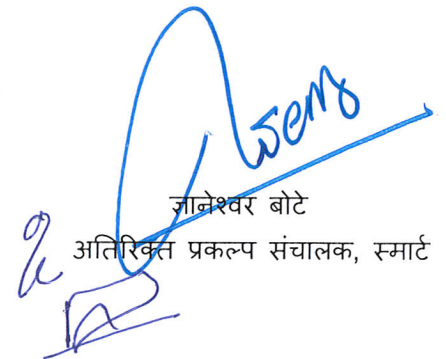 ज्ञानेश्वर बोटे
अतिरिक्त प्रकल्प संचालक, स्मार्ट